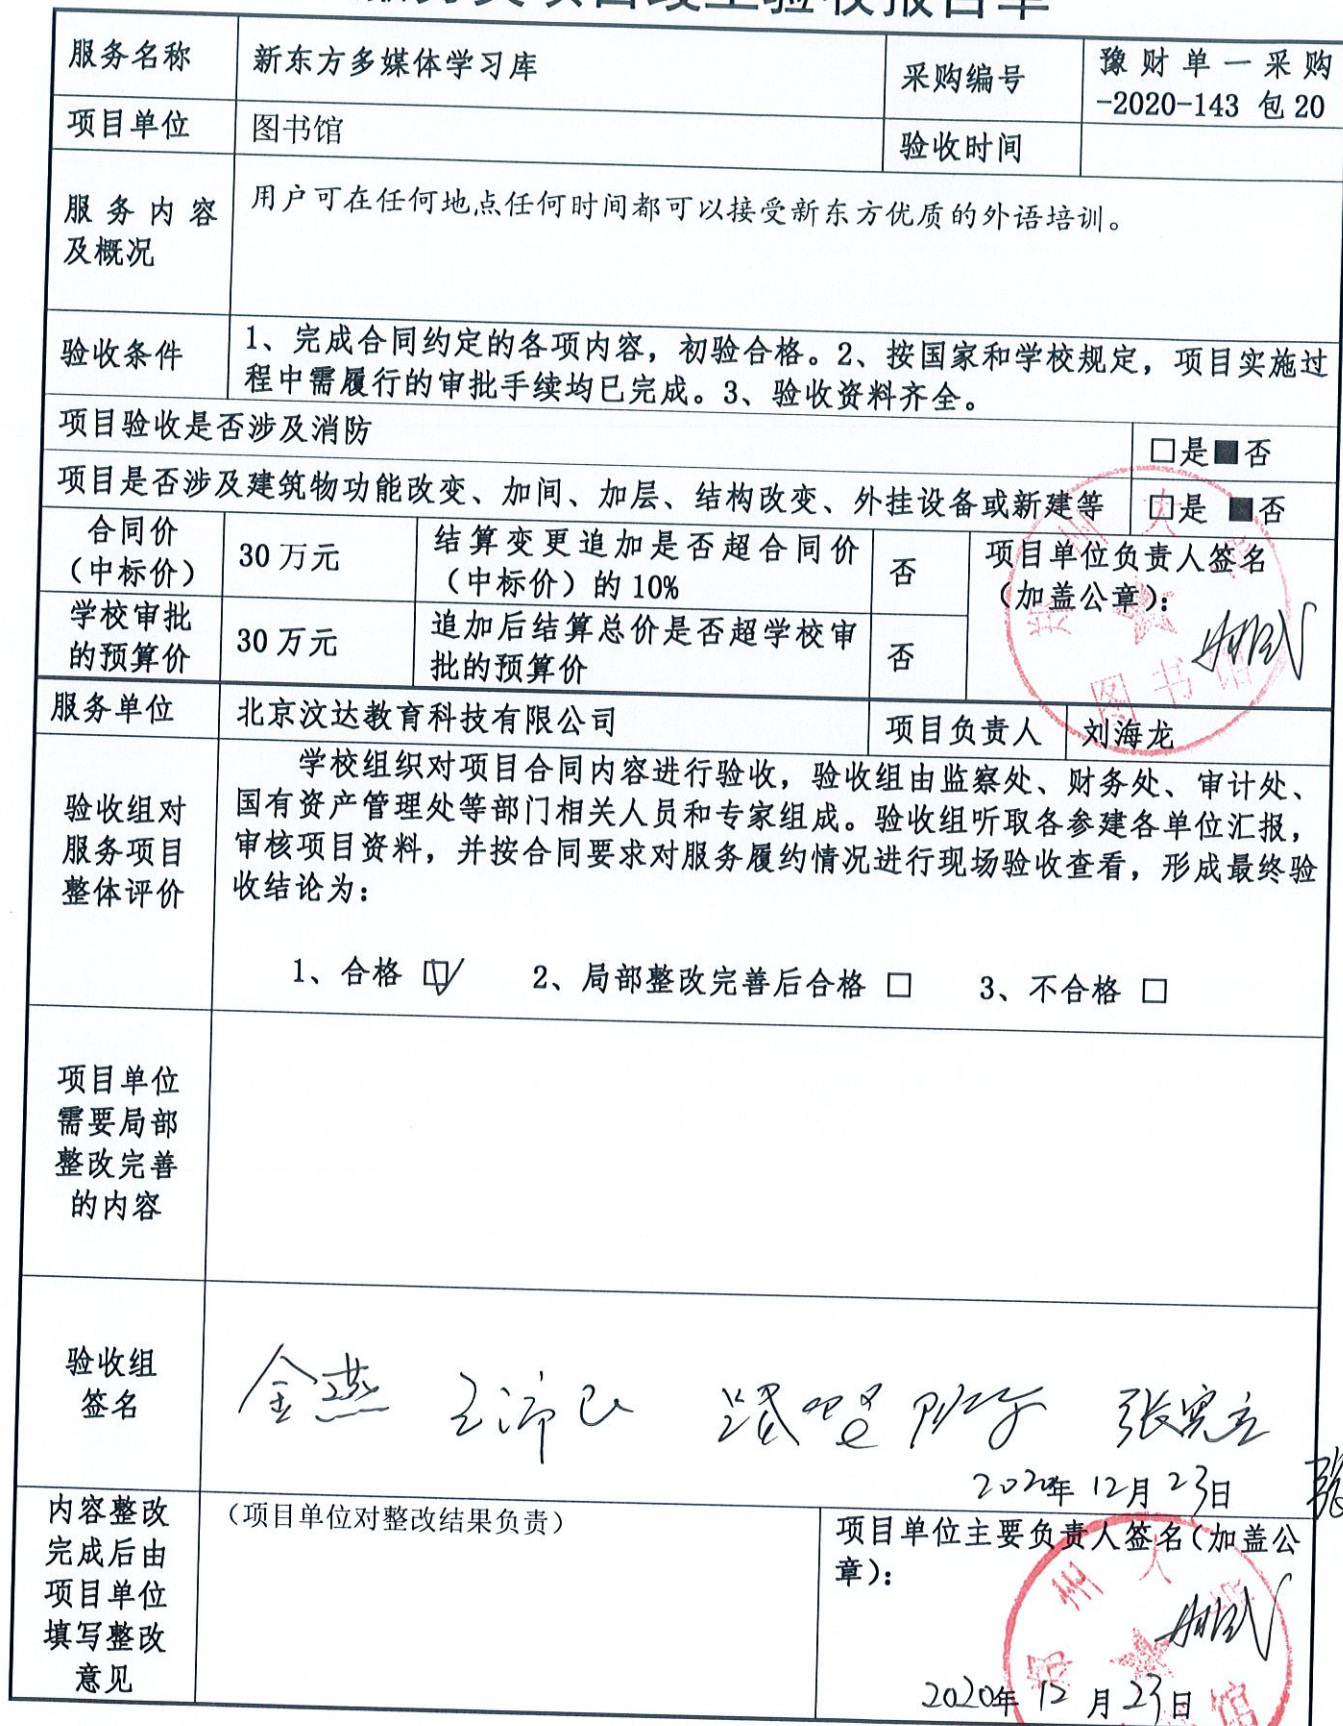 服务类项目竣工验收报告单
服务名称
新东方多媒体学习库
采购编号
豫财单一采购
-2020-143 包20
项目单位
图书馆
验收时间
服务内容
及概况
用户可在任何地点任何时间都可以接受新东方优质的外语培训。
验收条件
1、完成合同约定的各项内容，初验合格。2、按国家和学校规定，项目实施过
程中需履行的审批手续均已完成。3、验收资料齐全。
项目验收是否涉及消防
□是■否
项目是否涉及建筑物功能改变、加间、加层、结构改变、外挂设备或新建等
□是 ■否
合同价
（中标价）
30万元
结算变更追加是否超合同价
（中标价）的10%
否
项目单位负责人签名
（加盖公章）：
学校审批
的预算价
30万元
追加后结算总价是否超学校审
批的预算价
否
图书馆
服务单位
北京汶达教育科技有限公司
项目负责人
刘海龙
验收组对
服务项目
整体评价
学校组织对项目合同内容进行验收，验收组由监察处、财务处、审计处、
国有资产管理处等部门相关人员和专家组成。验收组听取各参建各单位汇报，
审核项目资料，并按合同要求对服务履约情况进行现场验收查看，形成最终验
收结论为：
1、合格 ☑ 2、局部整改完善后合格 □ 3、不合格 □
项目单位
需要局部
整改完善
的内容
验收组
签名
金燕
张
2020年12月23日
内容整改
完成后由
项目单位
填写整改
意见
（项目单位对整改结果负责）
项目单位主要负责人签名（加盖公
章）：
州大
馆
2020年12月23日